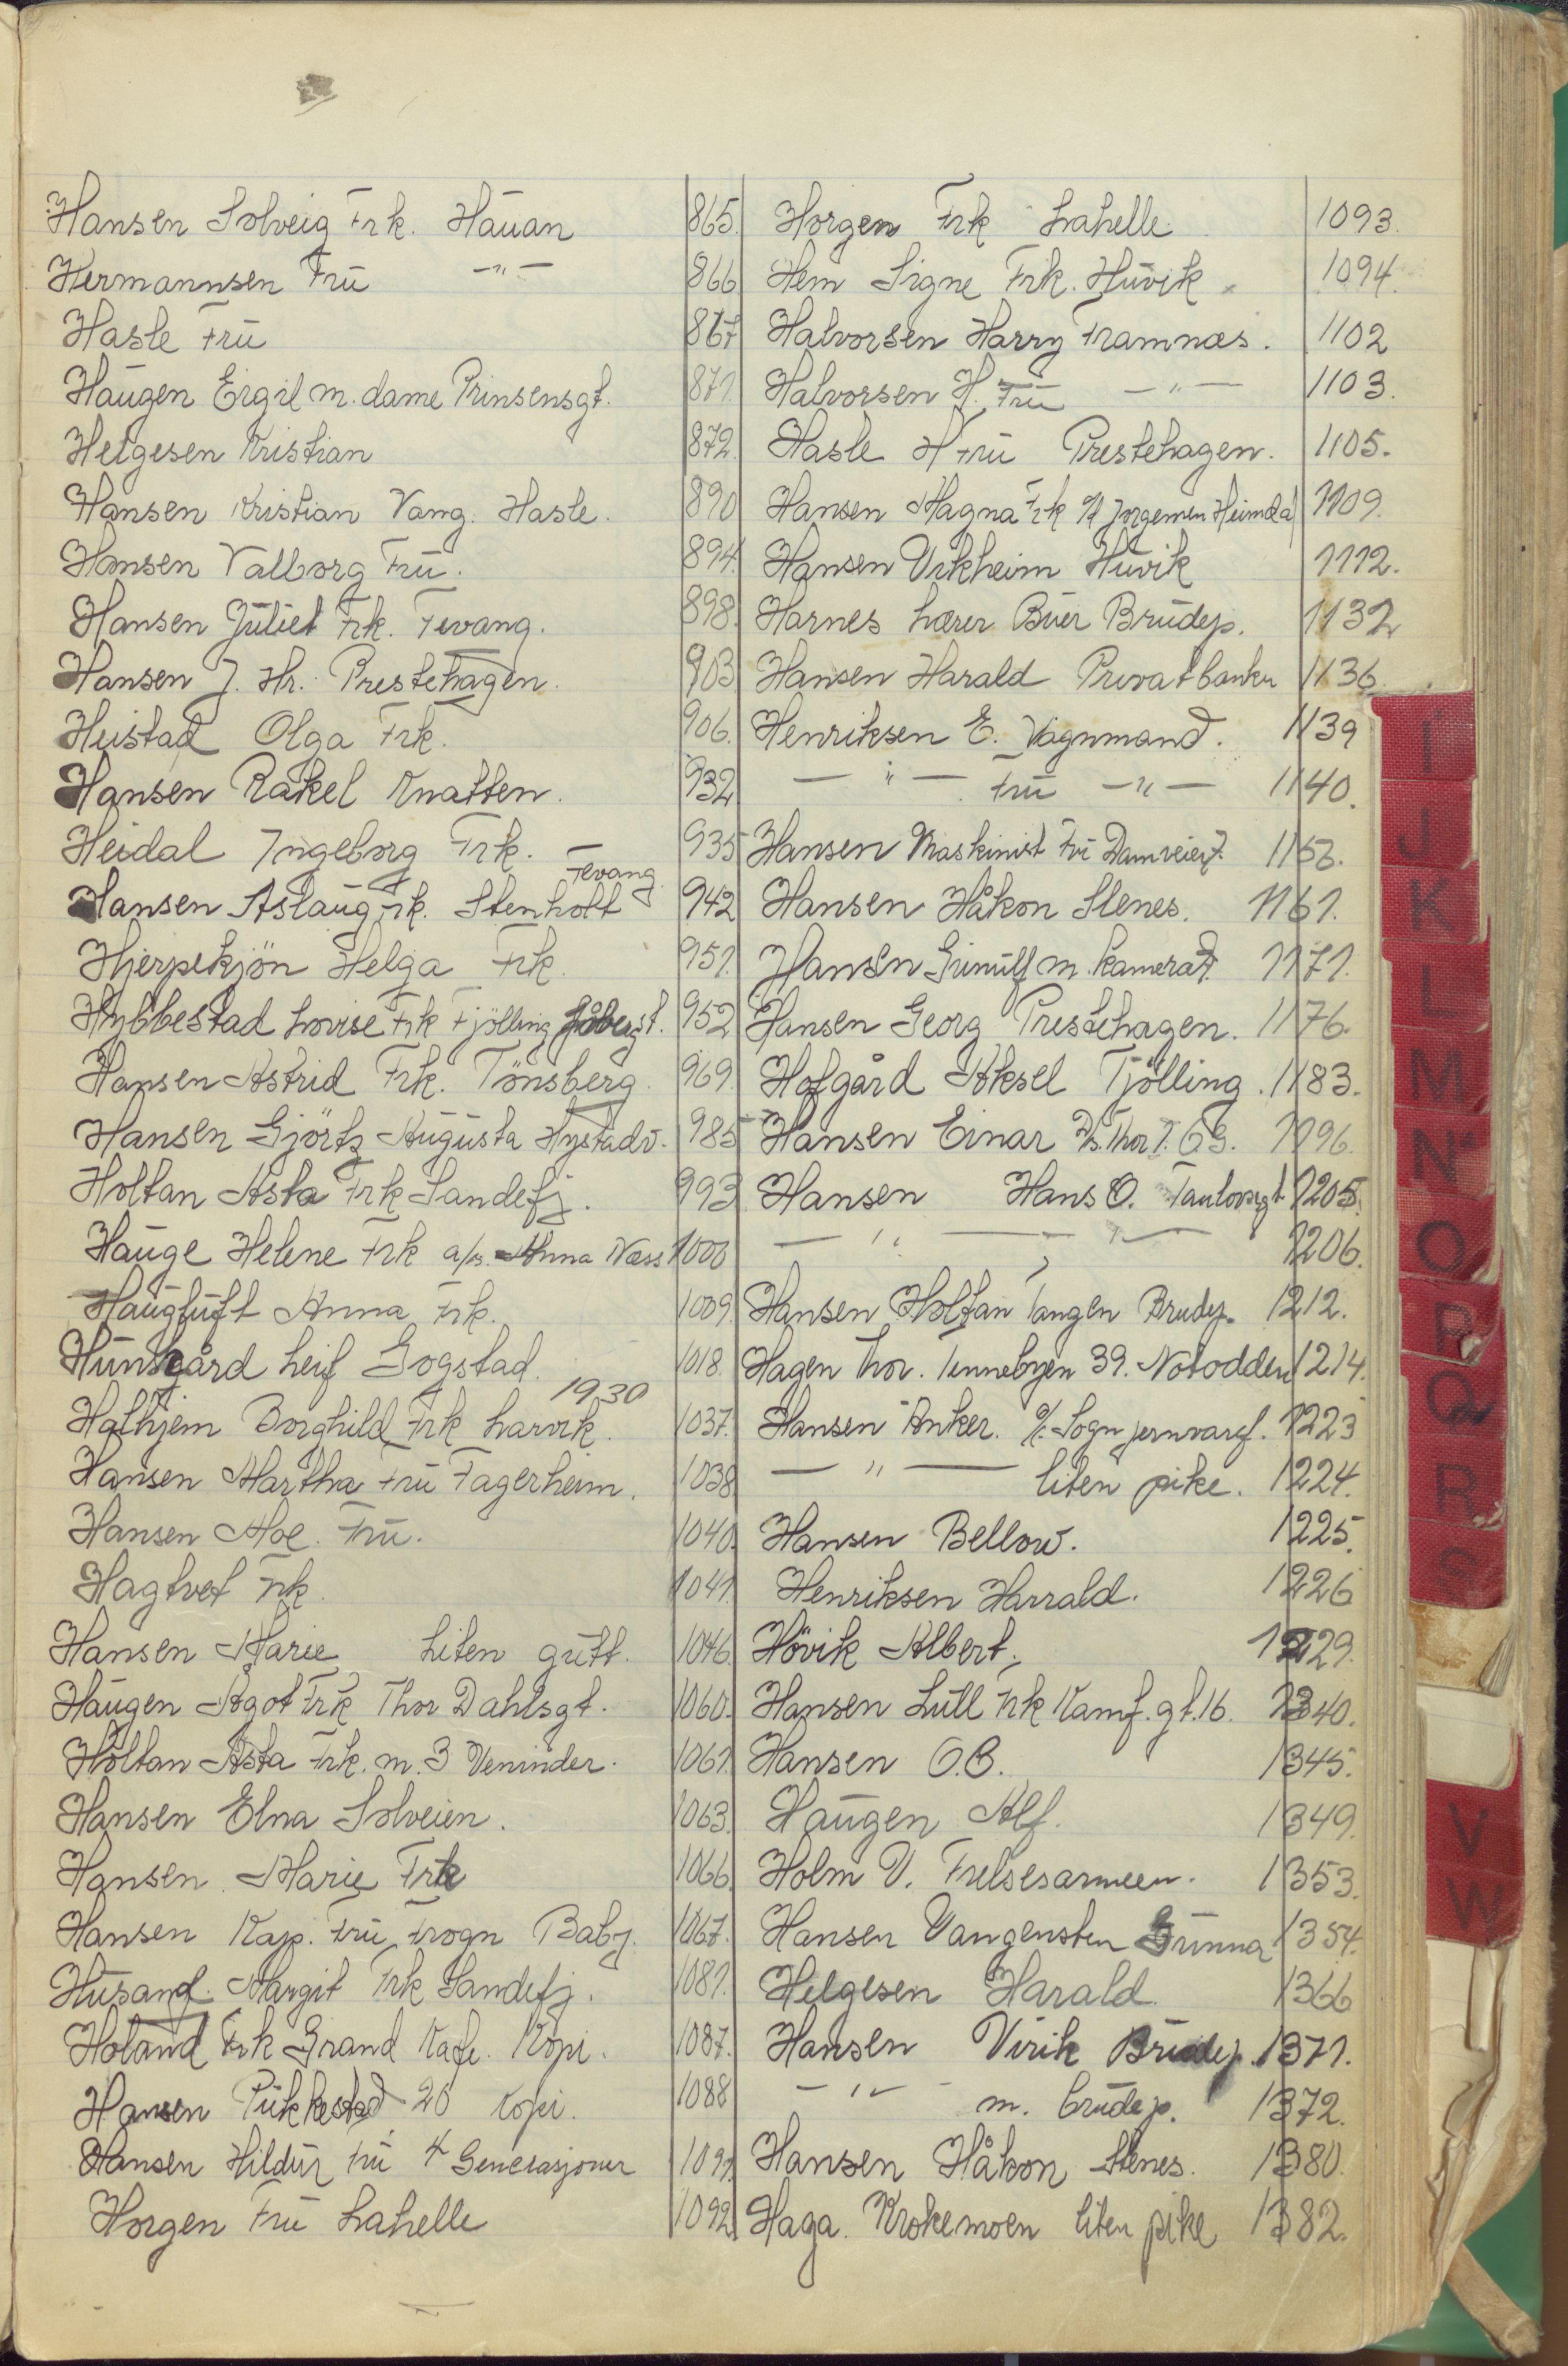 Hansen Solveig Frk. Hauan 865.
Hermannsen Fru —"— 866
Hasle Fru 867
Haugen Eigil m. dame Prinsensgt. 871.
Helgesen Kristian 872.
Hansen Kristian Vang. Hasle. 890
Hansen Valborg Fru. 894.
Hansen Juliet Frk. Fevang. 898.
Hansen J. Hr. Prestehagen. 903
Heistad Olga Frk. 906.
Hansen Rakel Knatten. 932
Heidal Ingeborg Frk. 935
Fevang.
Hansen Aslaug Frk. Stenholt 942
Hjerpekjön Helga Frk. 951.
Hybbestad Lovise Frk Fjölling 952
Hansen Astrid Frk. Tönsberg. 969.
Hansen Gjörtz Augusta Hystadv. 985
Holtan Asta Frk Sandefj. 993
Hauge Helene Frk a/s. Anna Næss 1000
Haugtuft Anna Frk. 1009.
Hunsgård Leif Gogstad. 1018.
1930
Halhjem Borghild Frk Larvik. 1037.
Hansen Martha Fru Fagerheim. 1038
Hansen Moe. Fru. 1040.
Hagtvet Frk. 1041.
Hansen Marie Liten gutt. 1046.
Haugen Ågot Frk Thor Dahlsgt. 1060.
Holtan Asta Frk. m. 3 Veninder. 1061.
Hansen Elna Solveien. 1063.
Hansen Marie Frk 1066.
Hansen Kap. Fru Frogn Baby. 1067.
Husand. Margit Frk Sandefj. 1081.
Holand Frk Grand Kafe. Kopi. 1087.
Hansen Pukkestad 20 Kopi. 1088
Hansen Hildur Fru 4 Generasjoner 1091.
Horgen Fru Lahelle 1092.
Horgen Frk Lahelle 1093.
Hem Signe Frk. Huvik 1094.
Halvorsen Harry Framnæs. 1102
Halvorsen H. Fru —"— 1103.
Hasle H Fru Prestehagen. 1105.
Hansen Magna Frk Jorgensen Heimdal 1109.
Hansen Virkheim Huvik 1112.
Harnes Lærer Buer Brudep. 1132
Hansen Harald Privatbanken 1136.
Henriksen E. Vognmand. 1139
—"— Fru —"— 1140.
Hansen Maskinist Fru Damveien 1153.
Hansen Håkon Stenes. 1161.
Hansen Grinulf m. kamerat. 1171.
Hansen Georg Prestehagen. 1176.
Hofgård Aksel Tjölling. 1183.
Hansen Einar D/s. Thor I. 1196.
Hansen Hans O. 1205.
—"— —"— 1206.
Hansen Holtan Tangen Brudep. 1212.
Hagen Thor. Tennebyen 39. Notodden 1214.
Hansen Anker. Sogn jernvaref. 1223
—"— liten pike. 1224.
Hansen Bellow. 1225.
Henriksen Harrald. 1226
Hövik Albert. 1229.
Hansen Lull Frk Kamf. gt. 16. 1340.
Hansen O.B. 1345.
Haugen Alf. 1349.
Holm V. Frelsesarmeen. 1353.
Hansen Vangensten Gunna 1354.
Helgesen Harald. 1366
Hansen Virik Brudep. 1371.
—"— m. brudep. 1372.
Hansen Håkon Stenes. 1380.
Haga. Krokemoen liten pike 1382.
I
J
K
L
M
N
O
P
Q
R
S
V
W